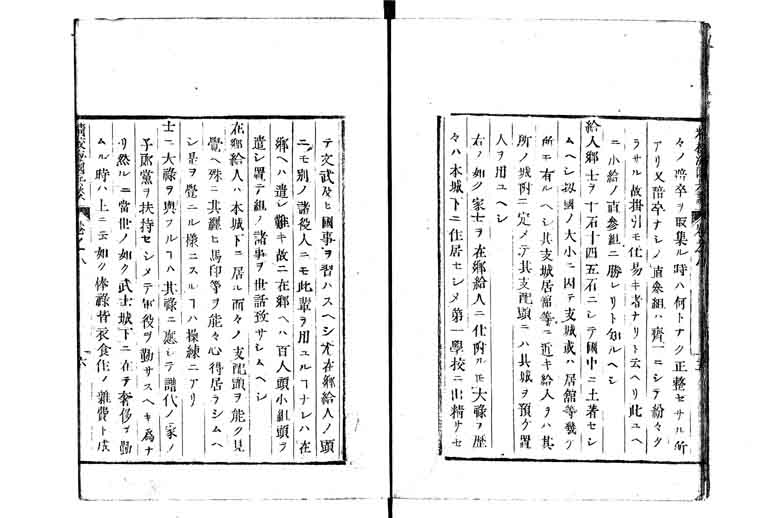 々ノ陪卒ヲ取集ル時ハ何トナク正整セサル所
アリ又陪卒ナシノ直參組ハ齊一ニシテ紛々ク
ラサル故掛引モ仕易キ者ナリト云ヘリ此ユヘ
ニ小給ノ直參組ニ勝レリト知ルヘシ
給人郷士ヲ十石十四五石ニシテ國中ニ土著セシ
ムヘシ拟國ノ大小ニ因テ支城或ハ居舘等幾ケ
所モ有ルヘシ其支城居舘等ニ近キ給人ヲハ其
所ノ城附ニ定メテ其支配頭ニハ其城ヲ預ケ置
人ヲ用ユヘシ
右ノ如ク家士ヲ在郷給人ニ仕附ルモ大祿ヲ歴
々ハ本城下ニ住居セシメ第一學校ニ出精サセ
テ文武及ヒ國事ヲ習ハスヘシ尤在郷給人ノ頭
ニモ別ノ諸役人ニモ此輩ヲ用ユルヿナレハ在
郷ヘハ遣シ難キ故ニ在郷ヘハ百人頭小組頭ヲ
遣シ置テ組ノ諸事ヲ世話致サシムヘシ
在郷給人ハ本城下ニ居ル而々ノ支配頭ヲ能ク見
覺ヘ殊ニ其纏ヒ馬印等ヲ能々心得居ラシムヘ
シ是ヲ覺ニル樣ニスルヿハ操練ニアリ
士ニ大祿ヲ與フルヿハ其祿ニ應シテ譜代ノ家ノ
子郎黨ヲ扶持セシメテ軍役ヲ勤サスヘキ爲ナ
リ然ルニ當世ノ如ク武士城下ニ在テ奢侈ヲ勤
ムル時ハ上ニ云如ク俸祿皆衣食住ノ雜費ト成
六